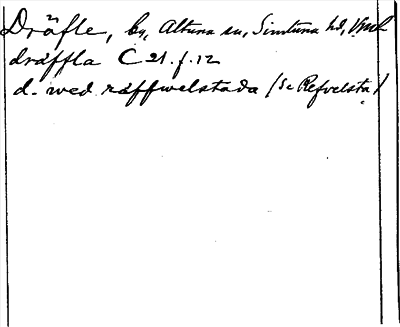 Dräfle, by, Altuna sn, Simtuna hd, Vml
dräffla C 21. f. 12
d. wed räffwelstada (Se Refvelsta)